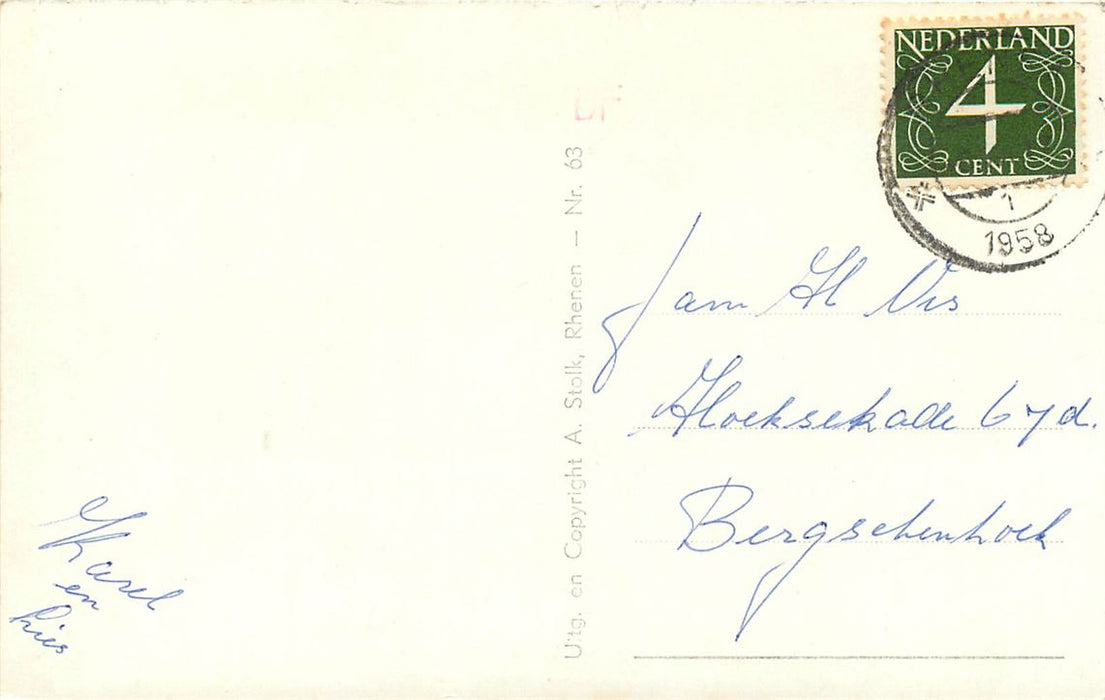 NEDERLAND
4
CENT
1
1958
Uitg. en Copyright A. Stolk, Rhenen — Nr. 63
Fam H Vis
Hoeksekade 67d.
Bergschenhoek
Karel
en